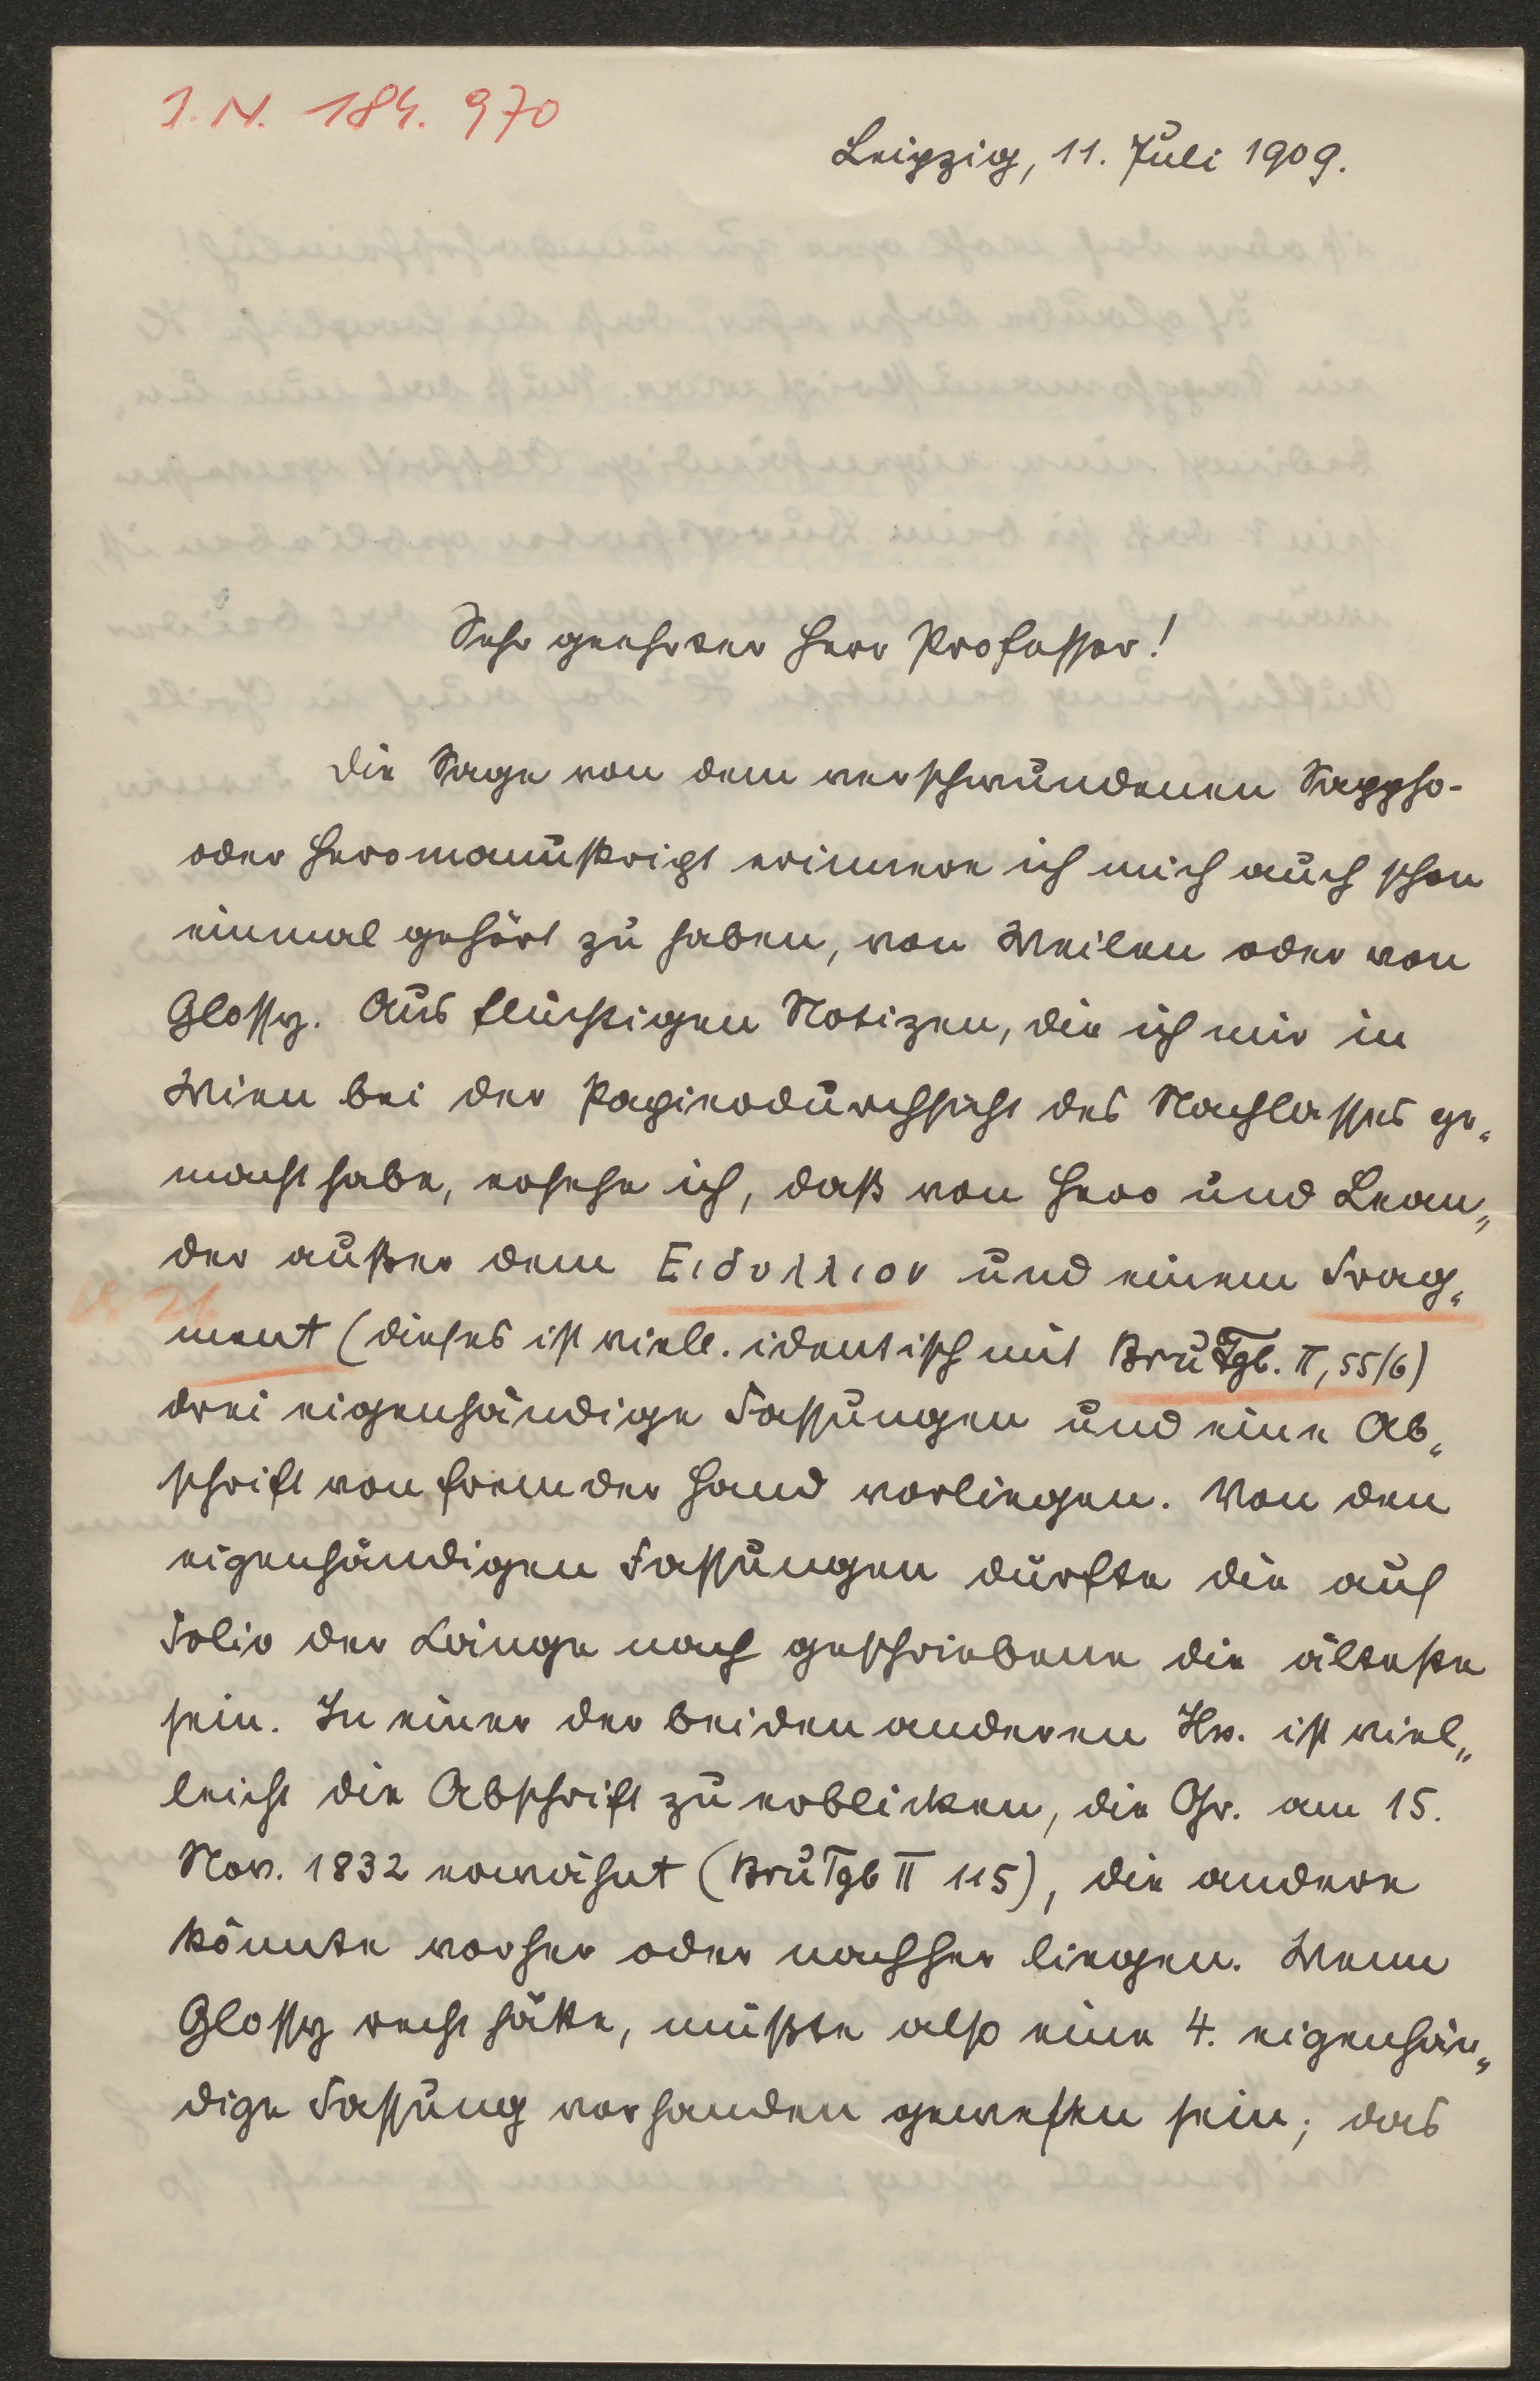 I. N. 184. 970
Leipzig, 11. Juli 1909.
Sehr geehrter Herr Professor!
Die Sage von dem verschwundenen Sappho-
oder Heromanuskript erinnere ich mich auch schon
einmal gehört zu haben, von Weilen oder von
Glossy. Aus flüchtigen Notizen, die ich mir in
Wien bei der Papierdurchsicht des Nachlasses ge„
macht habe, ersehe ich, daß von Hero und Lean„
der außer dem Ειδυλλιον und einem Frag„
ment (dieses ist viell. identisch mit BruTgb. II, 55/6)
drei eigenhändige Fassungen und eine Ab„
schrift von fremder Hand vorliegen. Von den
eigenhändigen Fassungen dürfte die auf
Folio der Länge nach geschriebene die älteste
sein. In einer der beiden anderen Hss. ist viel„
leicht die Abschrift zu erblicken, die Gr. am 15.
Nov. 1832 erwähnt (BruTgb II 115), die andere
könnte vorher oder nachher liegen. Wenn
Glossy recht hätte, müßte also eine 4. eigenhän„
dige Fassung vorhanden gewesen sein; das